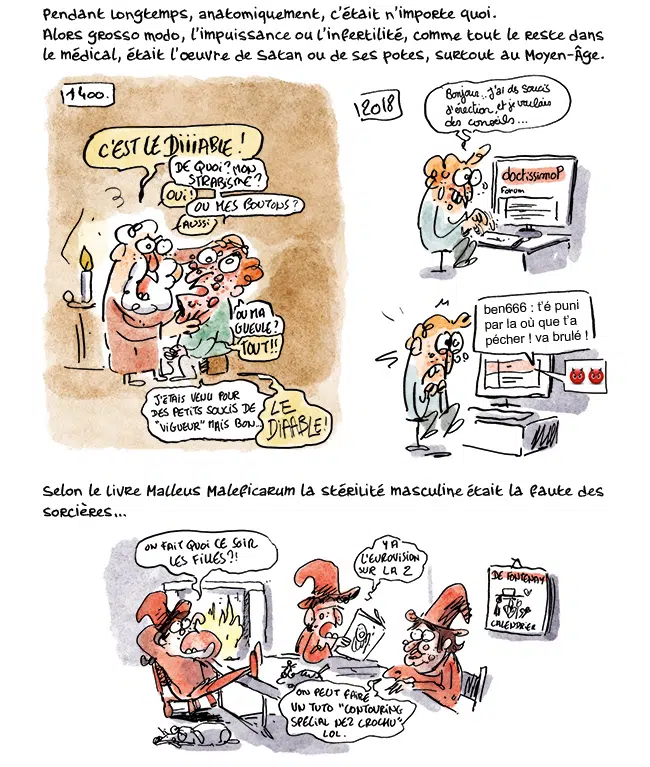 Pendant longtemps, anatomiquement, c'était n'importe quoi.
Alors grosso modo, l'impuissance ou l'infertilité, comme tout le reste dans
le médical, était l'œuvre de Satan ou de ses potes, surtout au Moyen-Âge.
1400.
C'EST LE DIIIABLE !
DE QUOI ? MON
STRABISME ?
OUI !
OU MES BOUTONS ?
AUSSI
OU MA
GUEULE ?
TOUT !!
J'ÉTAIS VENU POUR
DES PETITS SOUCIS DE
"VIGUEUR" MAIS BON...
LE
DIAABLE !
2018
Bonjour... j'ai des soucis
d'érection, et je voulais
des conseils...
doctissimoP
Forum
ben666 : t'é puni
par la où que t'a
pécher ! va brulé !
Selon le livre Malleus Maleficarum la stérilité masculine était la faute des
sorcières...
ON FAIT QUOI CE SOIR
LES FILLES ?!
Y A
L'EUROVISION
SUR LA 2
ON PEUT FAIRE
UN TUTO "CONTOURING
SPÉCIAL NEZ CROCHU"
LOL.
DE FONTENAY
CALENDRIER